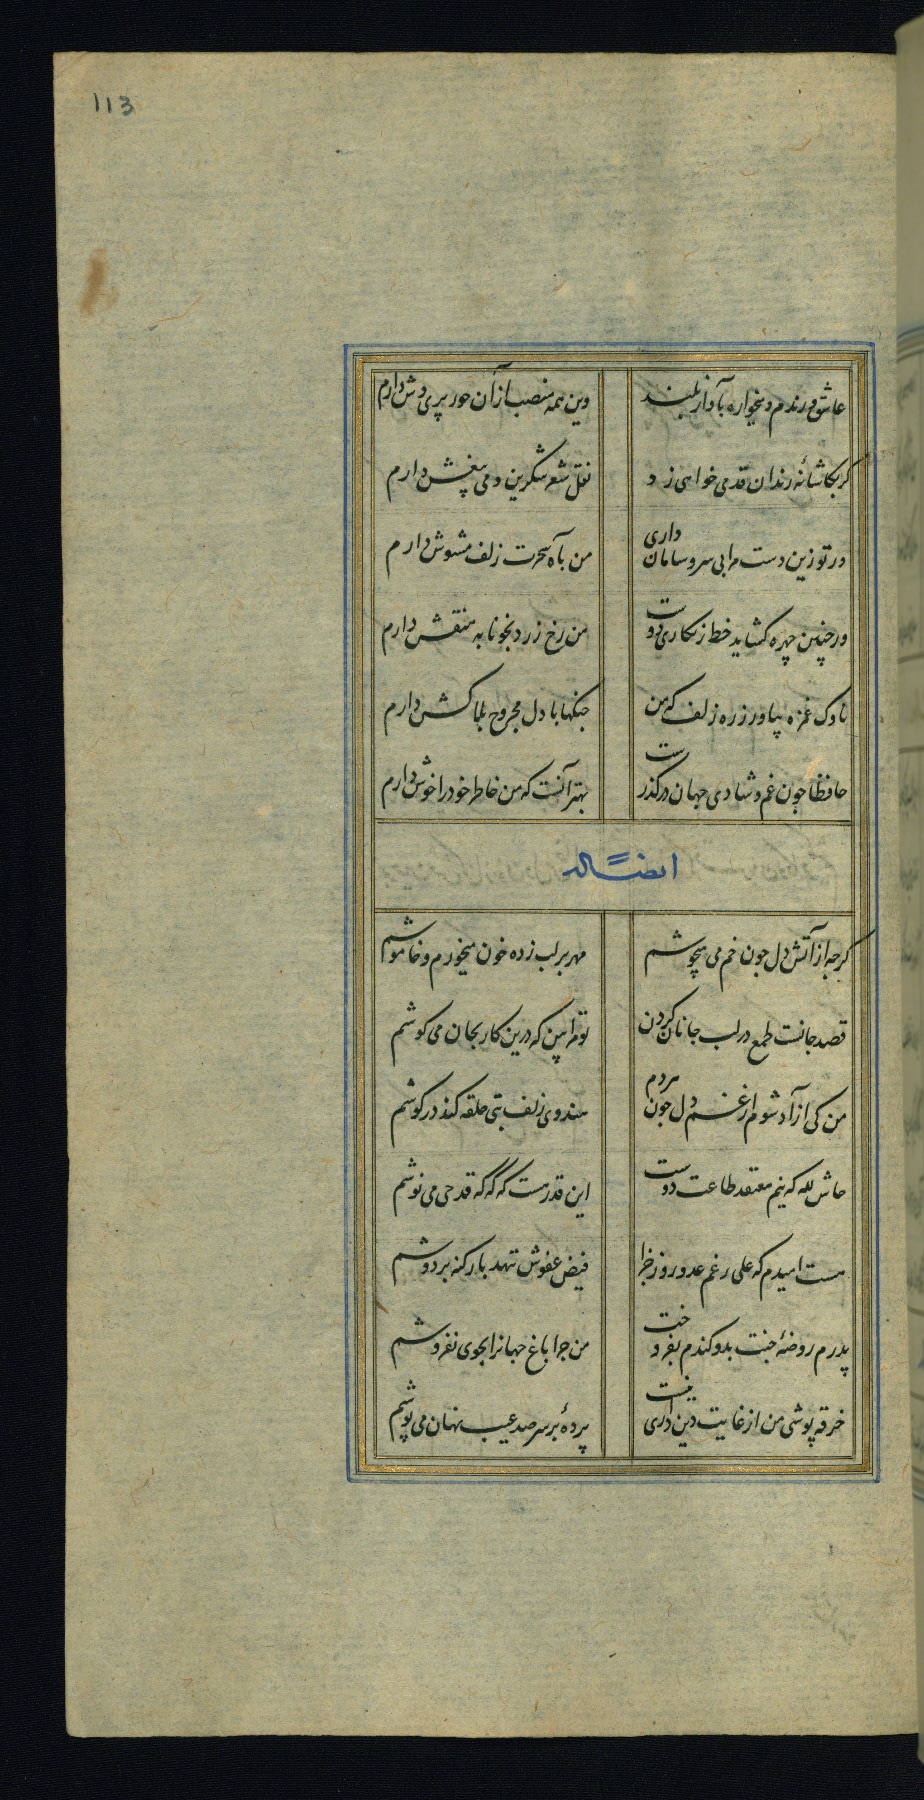 113
عاشق و رندم و میخواره بآواز بلند وین همه منصب ازآن حور پری وش دارم
کر بکاشانه رندان قدمی خواهی زد نقل شعر شکرین و می بیغش دارم
ور تو زین دست مرا بی سر و سامان داری من بآه سحرت زلف مشوش دارم
ور چنین چهره کشاید خط زنکاری دوست من رخ زرد بخونابه منقش دارم
ناوک غمزه بیاور زره زلف که من جنکها با دل مجروح بلاکش دارم
حافظا چون غم و شادی جهان درکذرست بهتر آنست که من خاطر خود را خوش دارم
ایضاً له
کرچه از آتش دل چون خم می میجوشم مهر بر لب زده خون میخورم و خاموشم
قصد جانست طمع در لب جانان کردن تو مرا بین که درین کار بجان می کوشم
من کی ازآد شوم از غم دل چون هر دم هندوی زلف بتی حلقه کند در کوشم
حاش لله که نیم معتقد طاعت دوست این قدر هست که که که قدحی می نوشم
هست امیدم که علی رغم عدو روز جزا فیض عفوش ننهد بار کنه بر دوشم
پدرم روضهٔ جنت بدو کندم بفروخت من چرا باغ جهانرا بجوی نفروشم
خرقه پوشی من از غایت دین داری نیست پردهٔ بر سر صد عیب نهان می پوشم